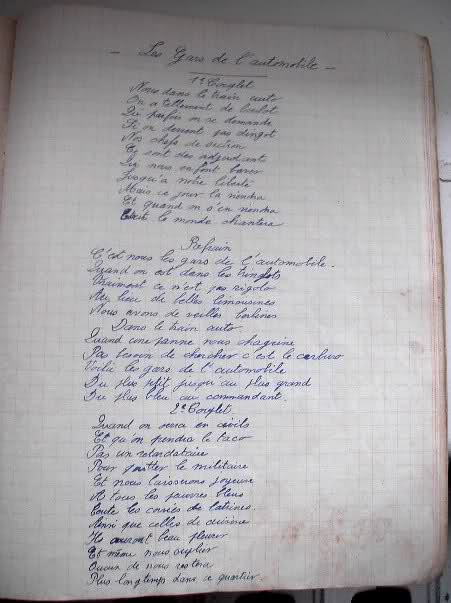 - Les Gars de l'automobile -
1er Couplet
Nous dans le train auto
On a tellement de boulot
Qu parfois on se demande
Si on devient pas dingot
Nos chefs de section
Et sont des adjudant
Qui nous en font baver
Jusqu'a notre liberté
Mais ce jour la viendra
Et quand on s'en viendra
Tout le monde chantera
Refrain
C'est nous les gars de l'automobile.
Quand on est dans les tringlots
Vraiment ce n'est pas rigolo
Au lieu de belles limousines
Nous avons de veilles berlines
Dans le train auto.
Quand une panne nous chagrine
Pas besoin de chercher c'est le carburo
Voilà les gars de l'automobile
Du plus ptit jusqu au plus grand
Du plus bleu au commandant.
2e Couplet
Quand on sera en civils
Et qu'on prendra le taco
Pas un retardataire
Pour quitter le militaire
Et nous laisserons joyeux
A tous les pauvres bleus
Toute les corvées de latrines.
Ainsi que celles de cuisine
Ils auront beau pleurer
Et même nous supplier
Aucun de nous restera
Plus longtemps dans ce quartier.